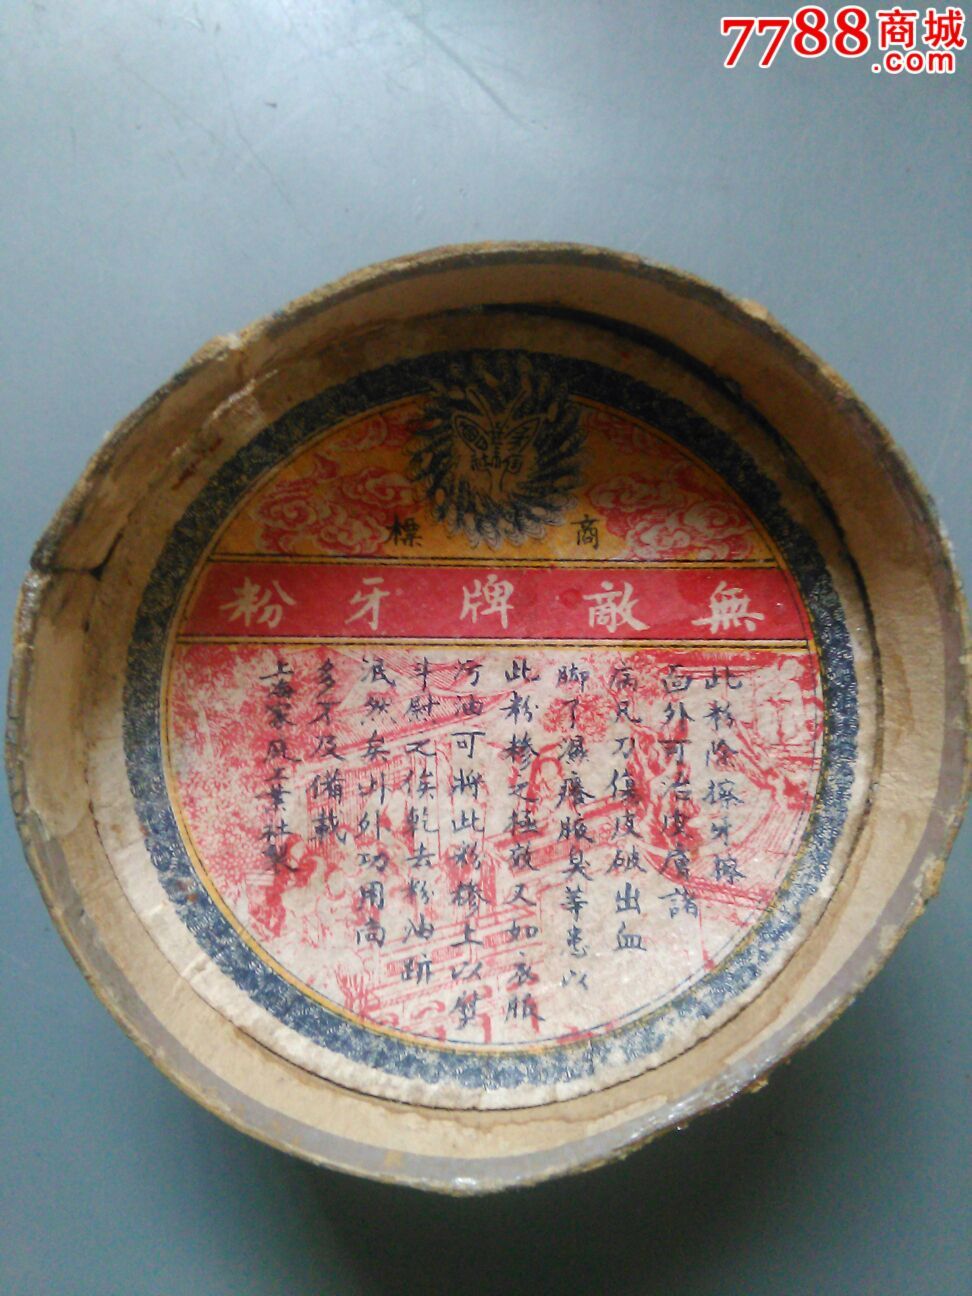 7788商城
.com
商標
無敵牌牙粉
此粉除擦牙擦
面外可治皮膚諸
病凡刀傷皮破出血
脚丫濕癢腋臭等患以
此粉糝之極效又如衣服
污油可將此粉糝上以熨
斗尉之俟乾去粉油跡
泯然矣此外功用尚
多不及備載
上海家庭工業社製